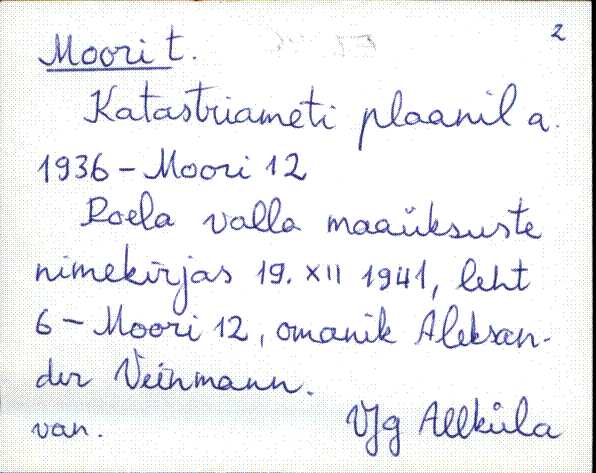 2
Moori t.
Katastriameti plaanil a.
1936 – Moori 12
Roela valla maaüksuste
nimekirjas 19. XII 1941, leht
6 – Moori 12, omanik Aleksan-
der Veinmann.
van. VJg Allküla